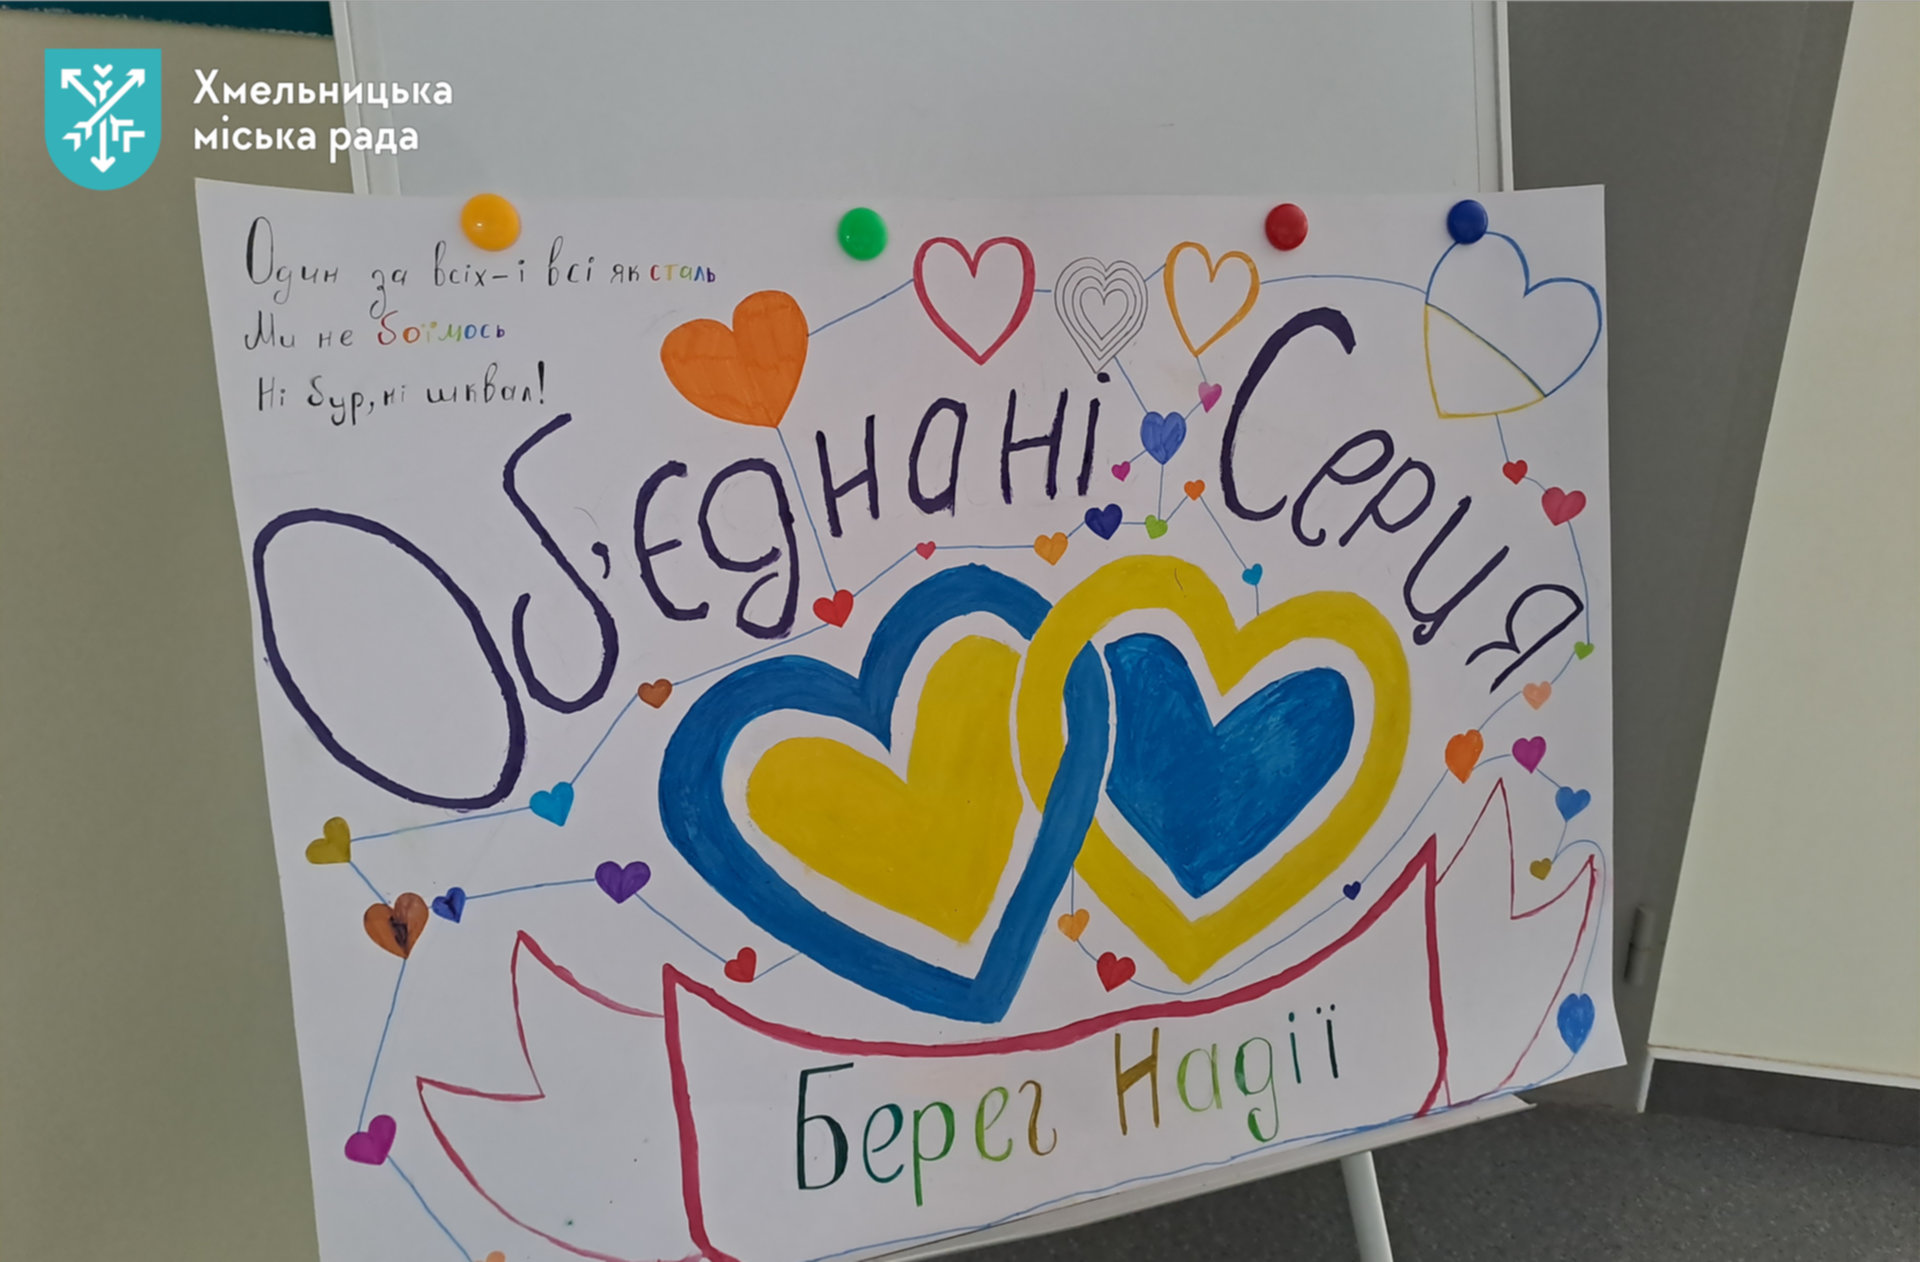 Хмельницька
міська рада
Один за всіх-і всі як сталь
Ми не боїмось
Ні бур, ні шквал!
Об'єднані Серця
Берег Надії